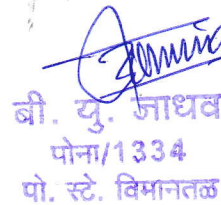 बी. यु. जाधव
पोना/1334
पो. स्टे. विमानतळ